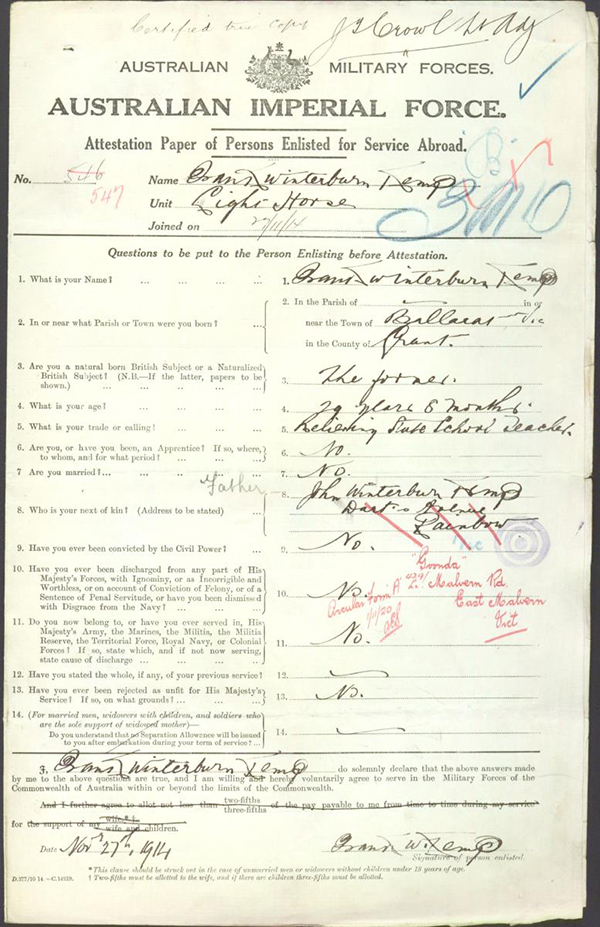 Certified true copy
AUSTRALIAN MILITARY FORCES.
AUSTRALIAN IMPERIAL FORCE.
Attestation Paper of Persons Enlisted for Service Abroad.
No. 546 Name Winterburn Kemp
547
Unit Light Horse
Joined on 27/11/14
Questions to be put to the Person Enlisting before Attestation.
1. What is your Name? ... ... ... ... 1. Winterburn Kemp
2. In or near what Parish or Town were you born? ... 2. In the Parish of in or
near the Town of Ballarat Vic
in the County of Grant.
3. Are you a natural born British Subject or a Naturalized
British Subject? (N.B.—If the latter, papers to be
shown.) ... ... ... ... 3. The former.
4. What is your age? ... ... ... ... 4. 29 years 8 months.
5. What is your trade or calling? ... ... ... 5. Relieving State School Teacher.
6. Are you, or have you been, an Apprentice? If so, where,
to whom, and for what period? ... ... 6. No.
7 Are you married? ... ... ... ... 7. No.
Father
8. Who is your next of kin? (Address to be stated) ... 8. John Winterburn Kemp
Avenue
Rainbow
9. Have you ever been convicted by the Civil Power? ... 9. No.
"Goonda"
Malvern Rd,
East Malvern
Vict
10. Have you ever been discharged from any part of His
Majesty's Forces, with Ignominy, or as Incorrigible and
Worthless, or on account of Conviction of Felony, or of a
Sentence of Penal Servitude, or have you been dismissed
with Disgrace from the Navy? ... ... 10. No.
Circular form "A"
11. Do you now belong to, or have you ever served in, His
Majesty's Army, the Marines, the Militia, the Militia
Reserve, the Territorial Force, Royal Navy, or Colonial
Forces? If so, state which, and if not now serving,
state cause of discharge ... ... ... 11. No.
12. Have you stated the whole, if any, of your previous service? 12.
13. Have you ever been rejected as unfit for His Majesty's
Service? If so, on what grounds? ... ... 13. No.
14. (For married men, widowers with children, and soldiers who
are the sole support of widowed mother)—
Do you understand that no Separation Allowance will be issued
to you after embarkation during your term of service? ... 14.
I, Winterburn Kemp do solemnly declare that the above answers made
by me to the above questions are true, and I am willing and hereby voluntarily agree to serve in the Military Forces of the
Commonwealth of Australia within or beyond the limits of the Commonwealth.
And I further agree to allot not less than two-fifths of the pay payable to me from time to time during my service
three-fifths
for the support of my wife
wife and children.
Date Nov 27th, 1914 W. Kemp
Signature of person enlisted.
* This clause should be struck out in the case of unmarried men or widowers without children under 18 years of age.
† Two-fifths must be allotted to the wife, and if there are children three-fifths must be allotted.